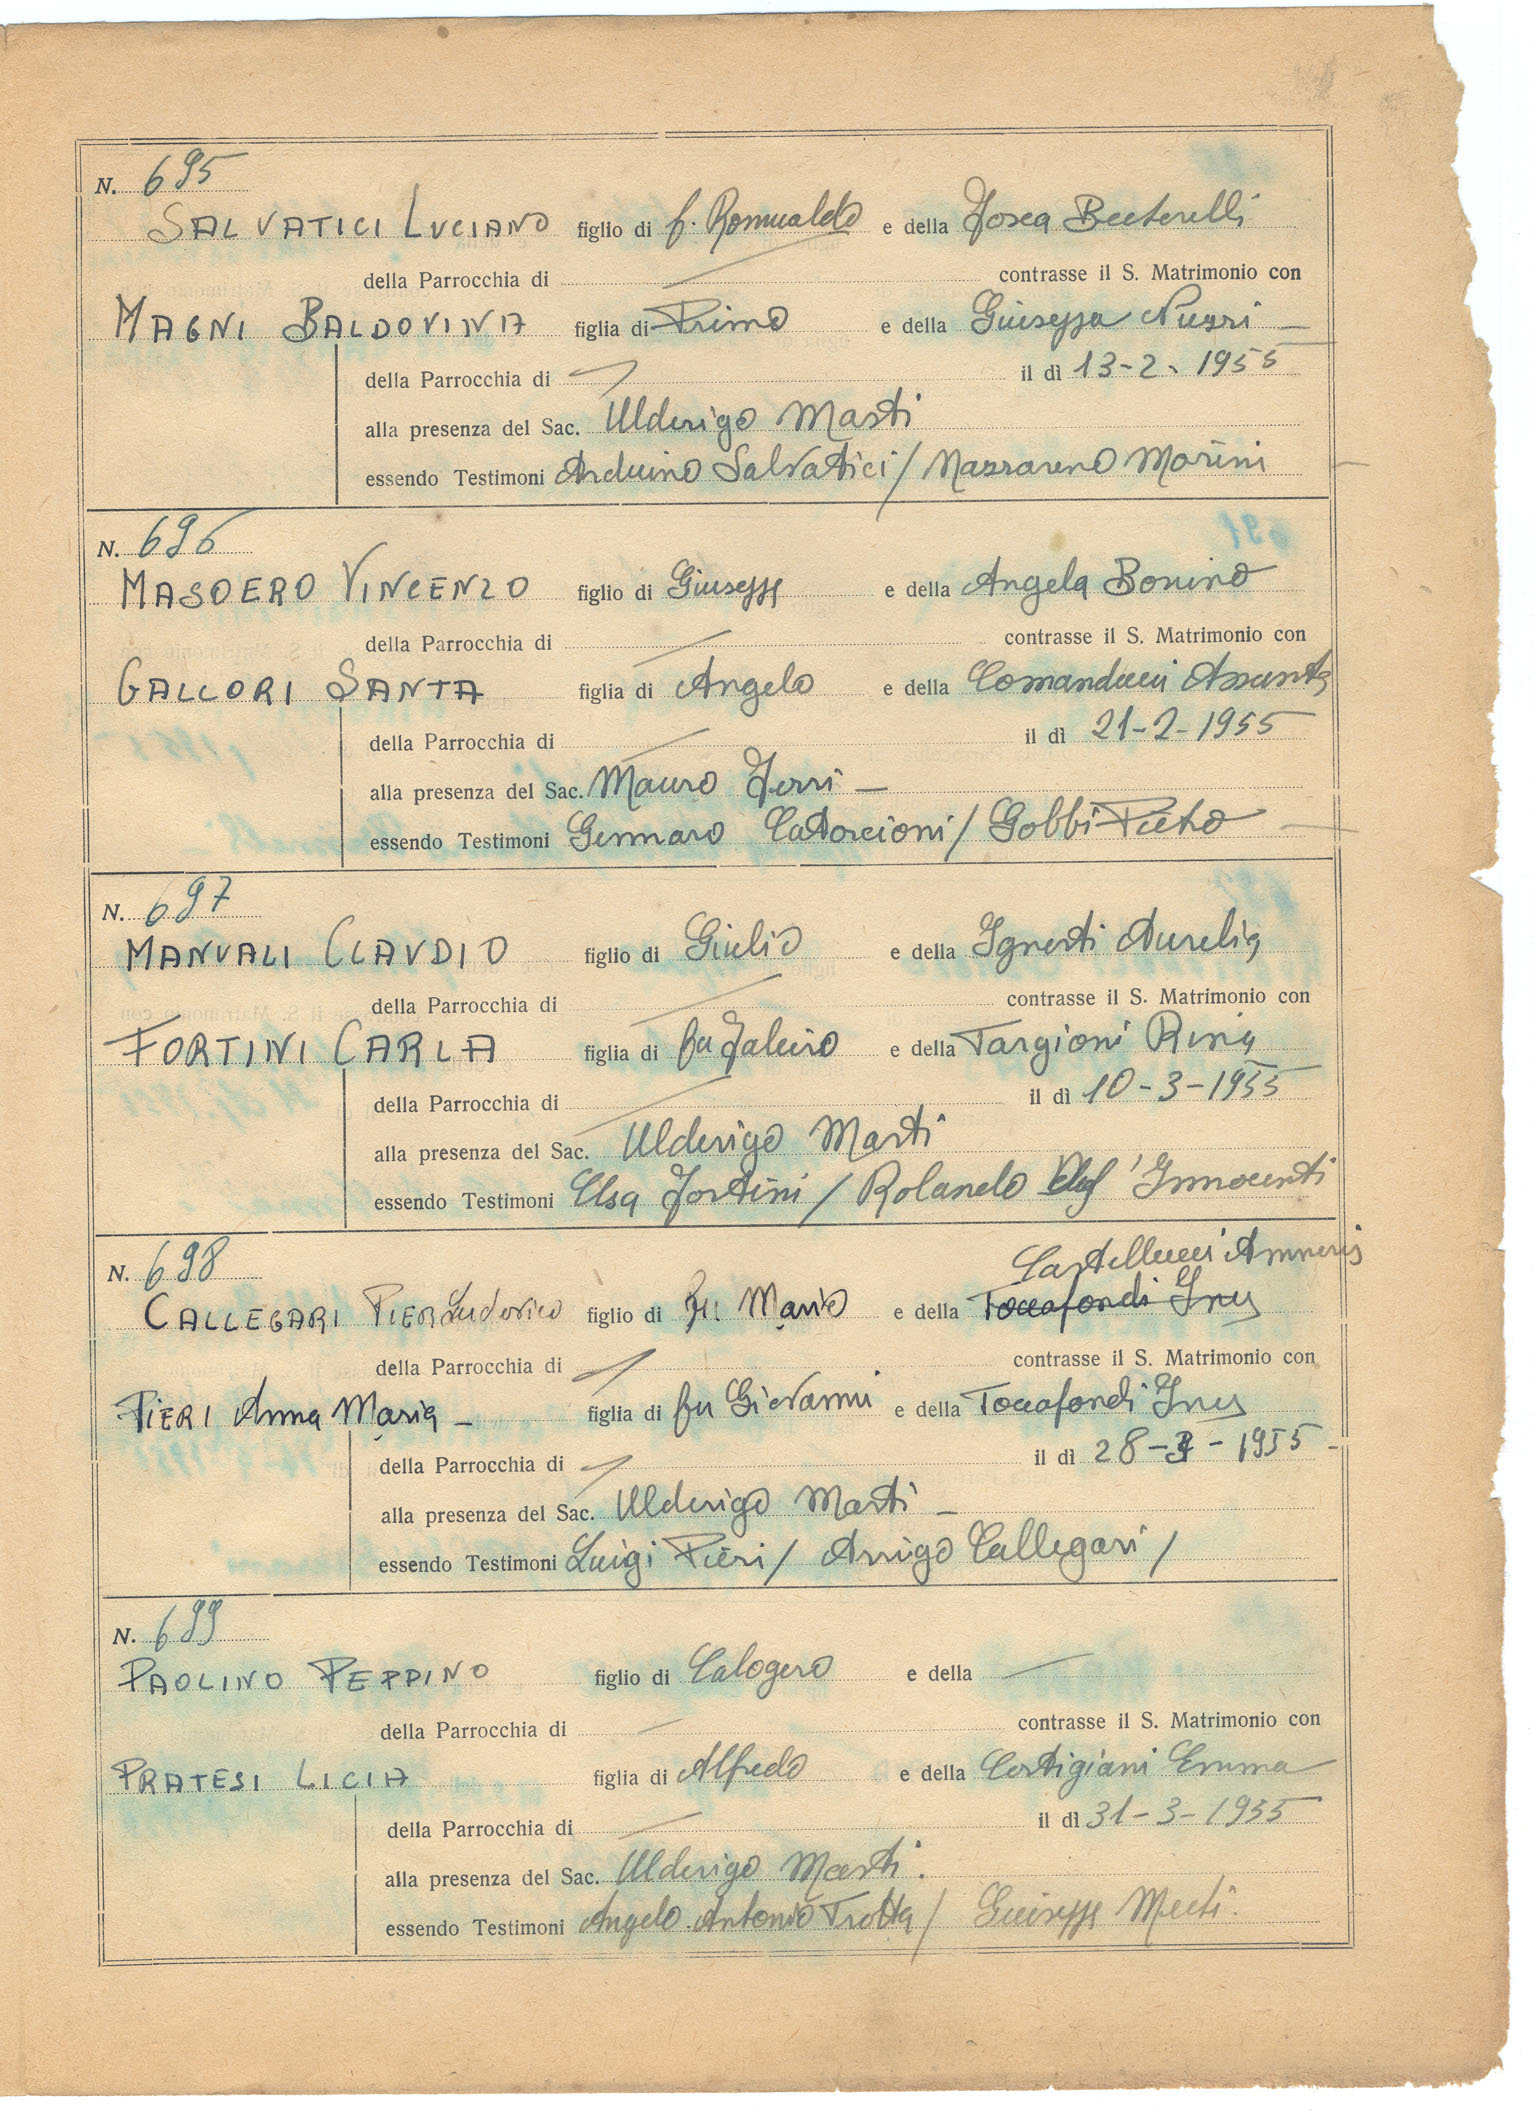 N. 695
SALVATICI LUCIANO figlio di f. Romualdo e della Tosca Betterelli
della Parrocchia di contrasse il S. Matrimonio con
MAGNI BALDOVINA figlia di Primo e della Giuseppa Nuzzi
della Parrocchia di il dì 13-2-1955
alla presenza del Sac. Ulderigo Masti
essendo Testimoni Arduino Salvatici / Nazzareno Morini
N. 696
MASOERO VINCENZO figlio di Giuseppe e della Angela Bonino
della Parrocchia di contrasse il S. Matrimonio con
GALLORI SANTA figlia di Angelo e della Comanducci Assunta
della Parrocchia di il dì 21-2-1955
alla presenza del Sac. Mauro
essendo Testimoni Gennaro Catorcioni / Gobbi Pietro
N. 697
MANUALI CLAUDIO figlio di Giulio e della Ignesti Aurelia
della Parrocchia di contrasse il S. Matrimonio con
FORTINI CARLA figlia di fu e della Targioni Rina
della Parrocchia di il dì 10-3-1955
alla presenza del Sac. Ulderigo Masti
essendo Testimoni Elsa Fortini / Rolando Innocenti
Castellucci Amneris
N. 698
CALLEGARI PIER Ludovico figlio di fu Mario e della Toccafondi Ines
della Parrocchia di contrasse il S. Matrimonio con
PIERI Anna Maria figlia di fu Giovanni e della Toccafondi Ines
della Parrocchia di il dì 28-3-1955
alla presenza del Sac. Ulderigo Masti
essendo Testimoni Luigi Pieri / Arrigo Callegari /
N. 699
PAOLINO PEPPINO figlio di Calogero e della
della Parrocchia di contrasse il S. Matrimonio con
PRATESI LICIA figlia di Alfredo e della Cortigiani Emma
della Parrocchia di il dì 31-3-1955
alla presenza del Sac. Ulderigo Masti.
essendo Testimoni Angelo Antonio Trotta / Giuseppe Meeti.